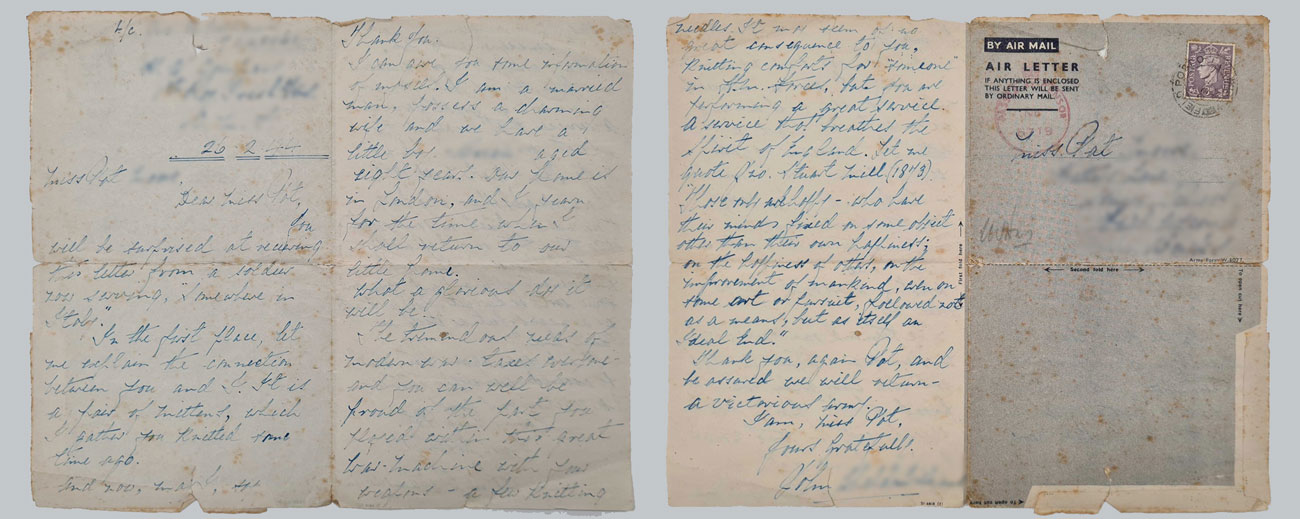 20 2 44
Miss Pat
Dear Miss Pat,
You
will be surprised at receiving
this letter from a soldier
now serving, "Somewhere in
Italy."
In the first place, let
me explain the connection
between you and I. It is
a pair of mittens, which
I gather you knitted some
time ago.
And now, may I, say
Thank You.
I can give you some information
of myself. I am a married
man, possess a charming
wife and we have a
little boy aged
eight years. Our home is
in London, and I yearn
for the time when I
shall return to our
little home.
What a glorious day it
will be!
The tremendous needs of
modern war taxes everyone-
and you can well be
proud of the part you
played within this great
War-machine with your
weapons - a few knitting
needles. It may seem of no
great consequence to you,
Knitting comforts for "someone"
in H.M. Forces, but you are
performing a great service.
A service that breathes the
spirit of England. Let me
quote Jno. Stuart Mill (1843).
"Those only are happy - who have
their minds fixed on some object
other than their own happiness;
on the happiness of others, on the
improvement of mankind, even on
some art or pursuit, followed not
as a means, but as itself an
ideal End."
Thank you, again Pat, and
be assured we will return-
a victorious army.
I am, Miss Pat,
Yours Gratefully.
John
BY AIR MAIL
AIR LETTER
IF ANYTHING IS ENCLOSED
THIS LETTER WILL BE SENT
BY ORDINARY MAIL.
Miss Pat
First fold here
Second fold here
To open cut here
To open cut here